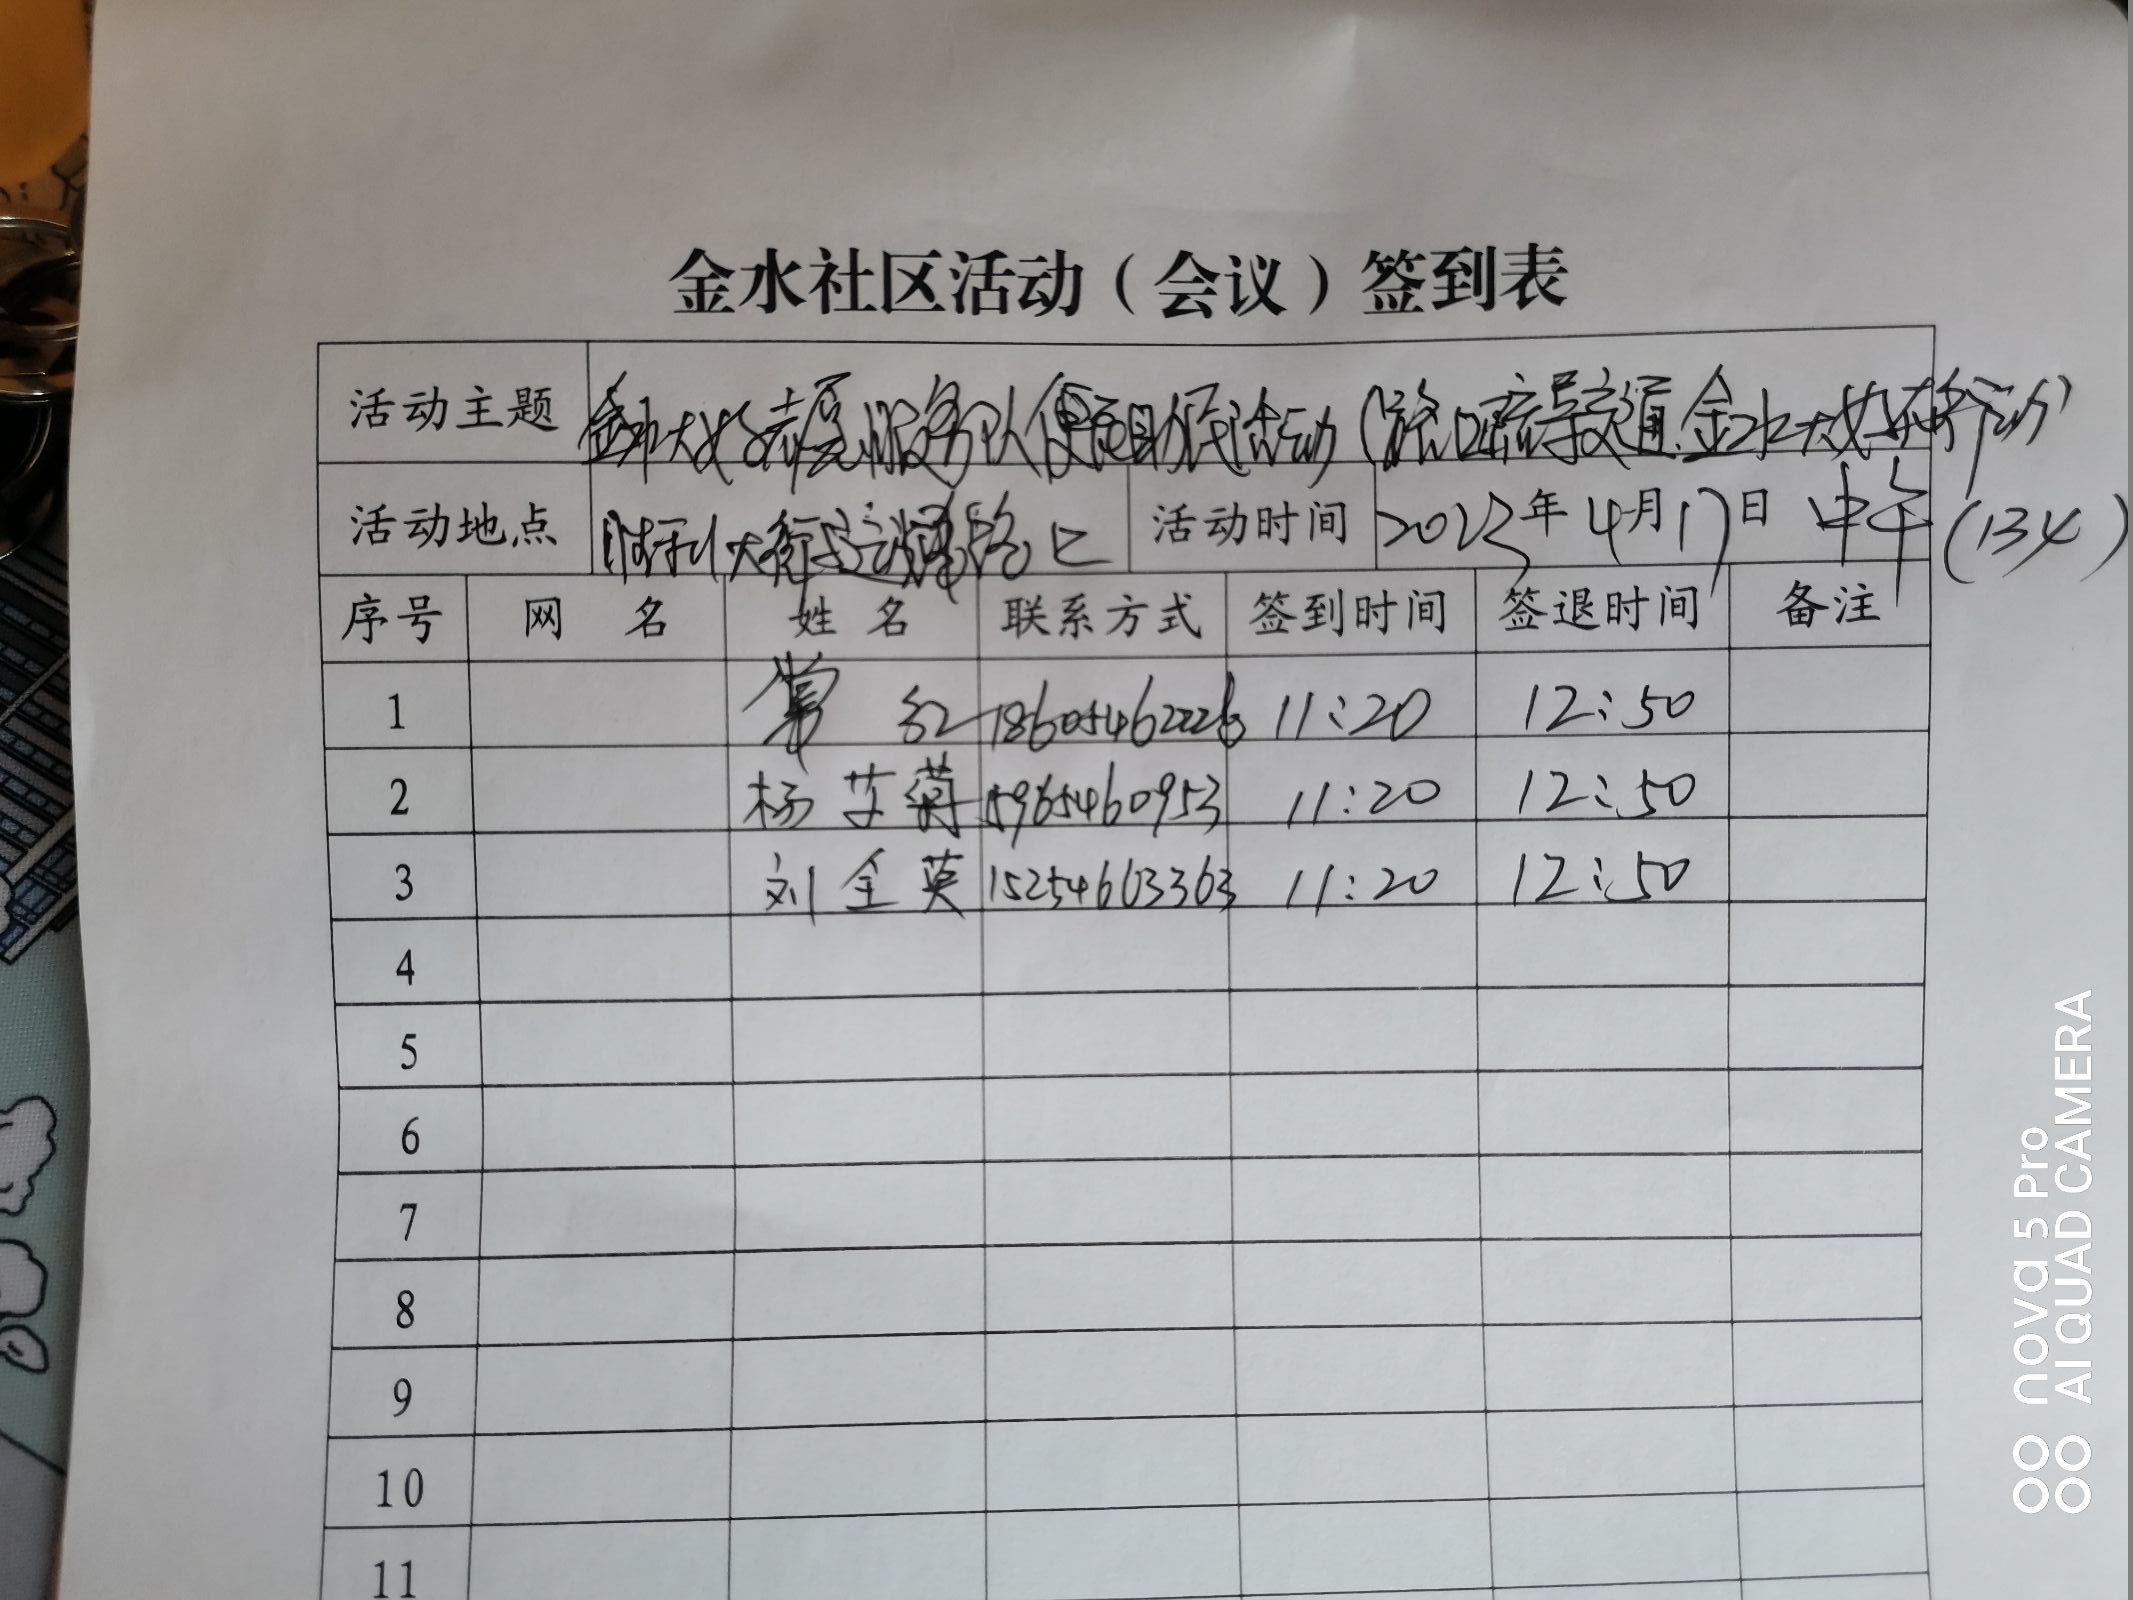 金水社区活动（会议）签到表
活动主题 金水大妹志愿服务队便民助民活动（路口疏导交通.金水大妹在行动）
活动地点 胜利大街与 路口 活动时间 2023年4月17日 中午（134）
序号 网 名 姓 名 联系方式 签到时间 签退时间 备注
1 红 18605462226 11:20 12:50
2 杨艾菊 15965460953 11:20 12:50
3 刘全英 15254663363 11:20 12:50
4
5
6
7
8
9
10
11
nova 5 Pro
AI QUAD CAMERA